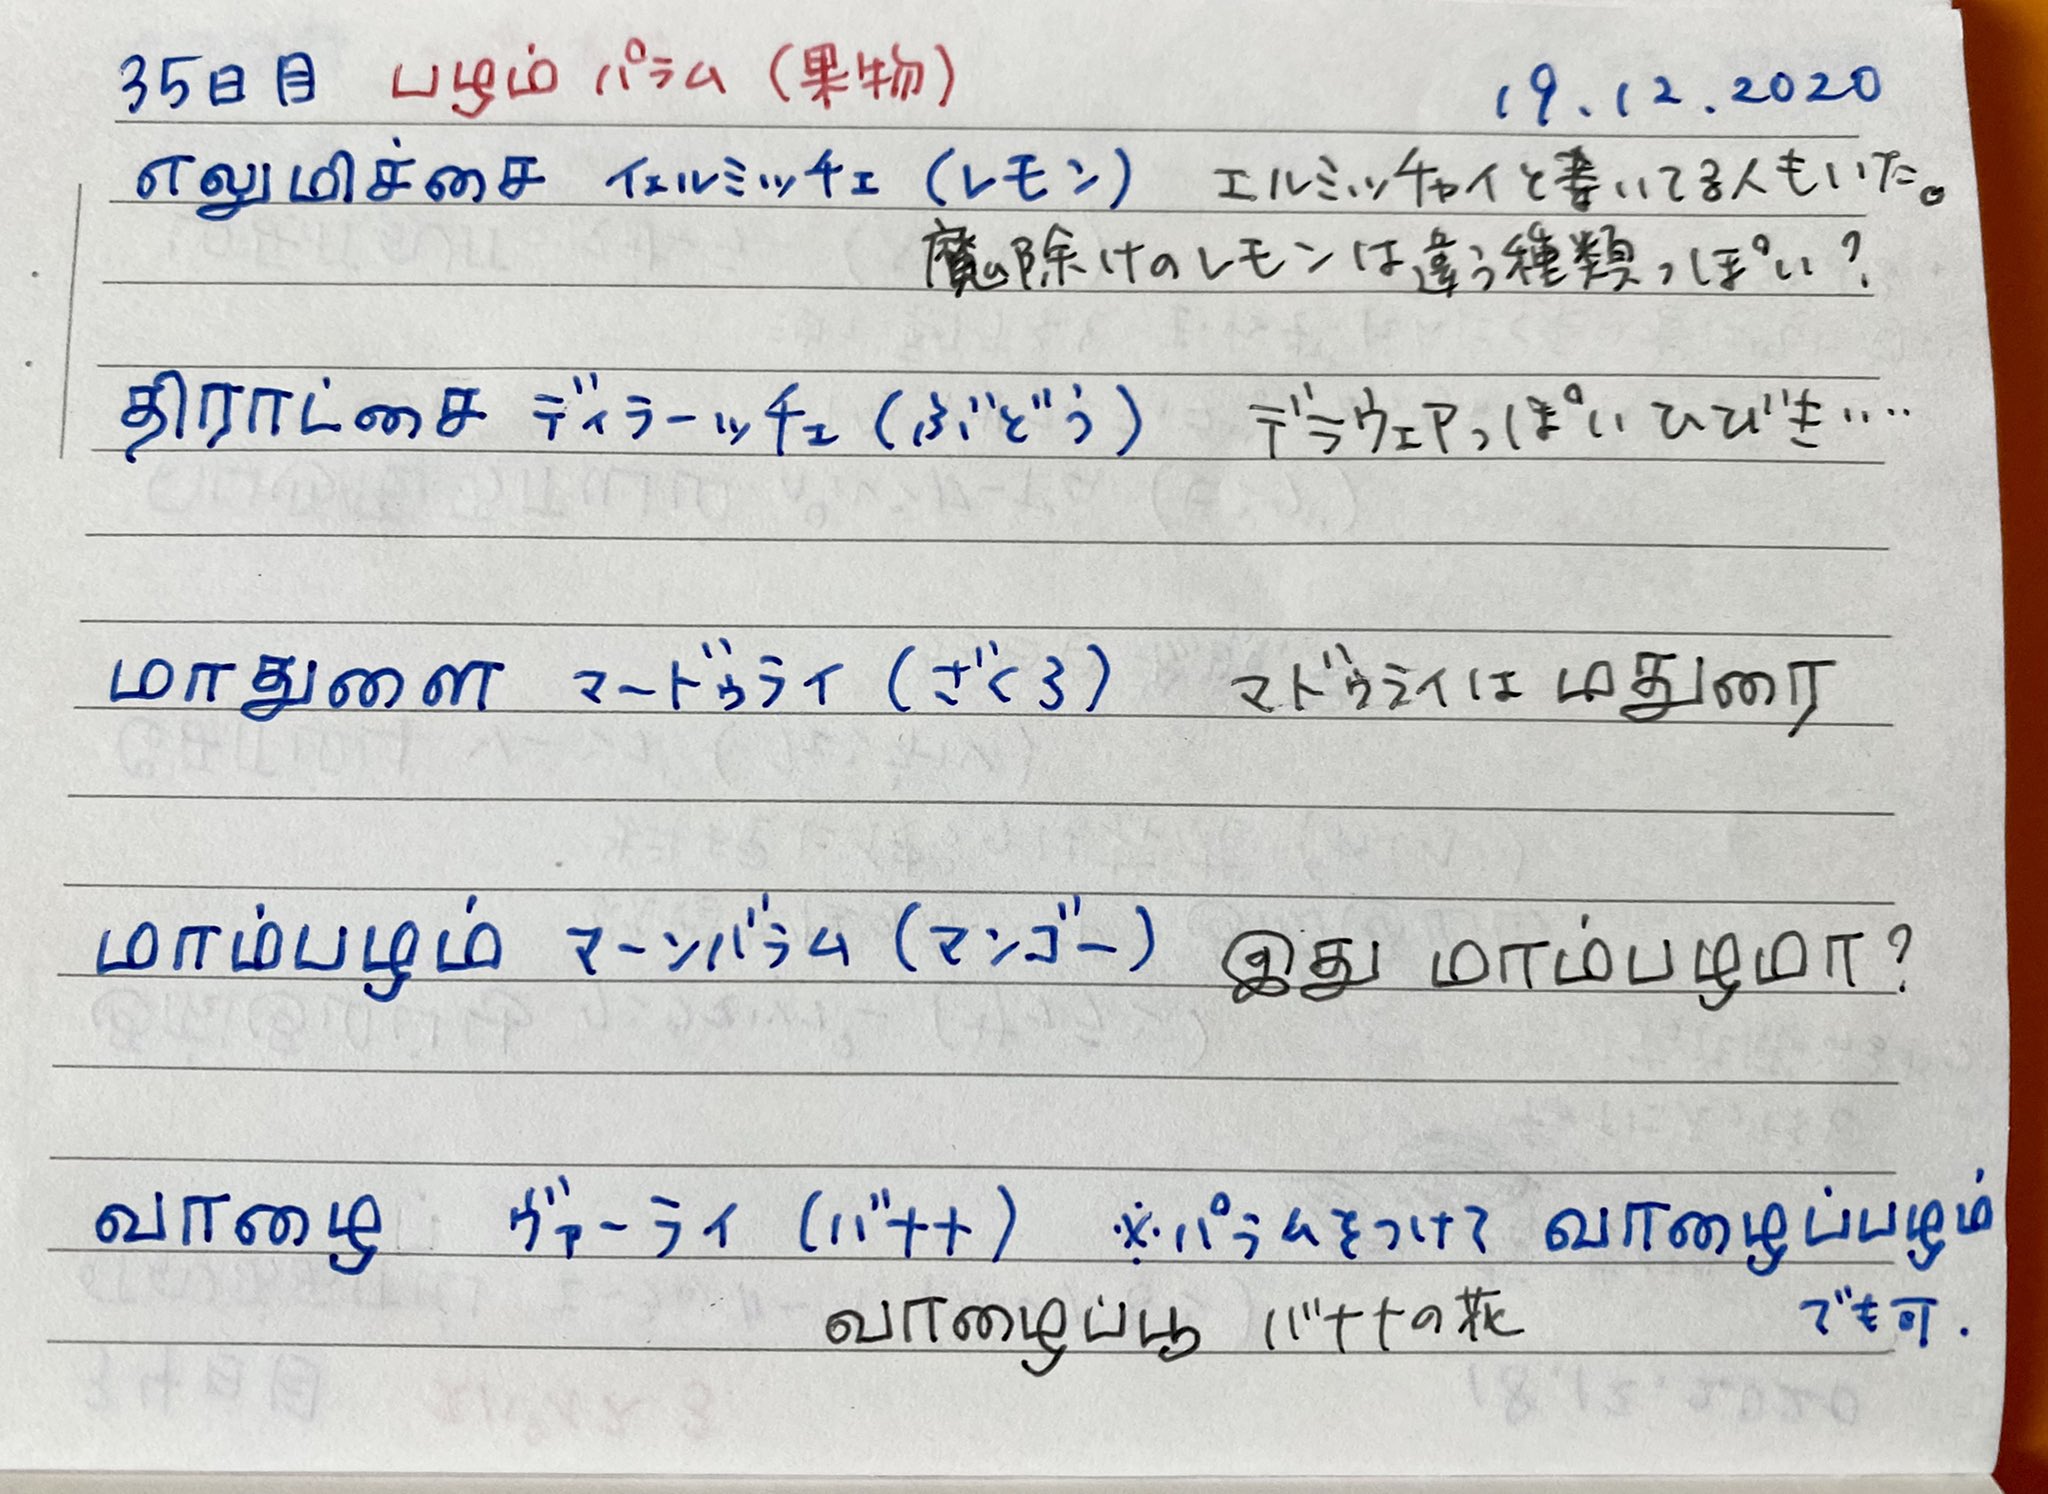 35日目 பழம் パラム (果物) 19.12.2020
எலுமிச்சை イェルミッチェ (レモン) エルミッチャイと書いてる人もいた。
魔除けのレモンは違う種類っぽい?
திராட்சை ディラーッチェ (ぶどう) デラウェアっぽいひびき‥‥
மாதுளை マードゥライ (ざくろ) マドゥライは மதுரை
மாம்பழம் マーンバラム (マンゴー) இது மாம்பழமா?
வாழை ヴァーライ (バナナ) ※パラムをつけて வாழைப்பழம்
வாழைப்பூ バナナの花 でも可.